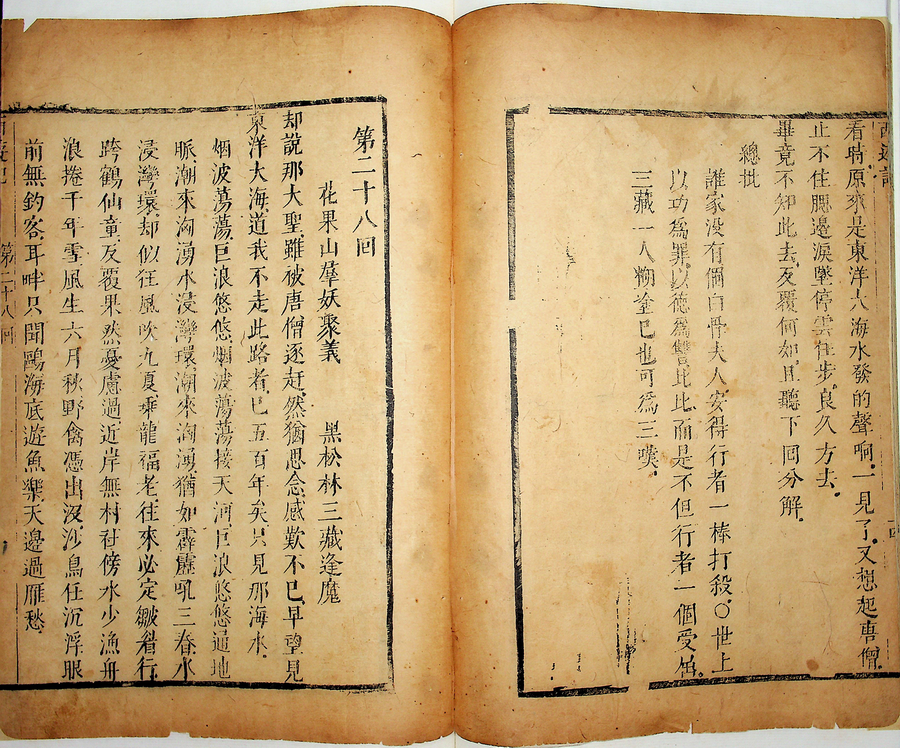 西遊記
看時原來是東洋大海水發的聲响一見了又想起唐僧
止不住腮邊淚墜停雲住步良久方去
畢竟不知此去反覆何如且聽下回分解
總批
誰家没有個白骨夫人安得行者一棒打殺○世上
以功爲罪以德爲讐比比而是不但行者一個受屈
三藏一人糊塗已也可爲三嘆
第二十八回
花果山羣妖聚義 黑松林三藏逢魔
却說那大聖雖被唐僧逐赶然猶思念感歎不已早望見
東洋大海道我不走此路者已五百年矣只見那海水
烟波蕩蕩巨浪悠悠烟波蕩蕩接天河巨浪悠悠通地
脈潮來洶湧水浸灣環潮來洶湧猶如霹靂吼三春水
浸灣環却似狂風吹九夏乘龍福老往來必定皺着行
跨鶴仙童反覆果然憂慮過近岸無村社傍水少漁舟
浪捲千年雪風生六月秋野禽憑出沒沙鳥任沉浮眼
前無釣客耳畔只聞鷗海底遊魚樂天邊過雁愁
西遊記 第二十八回